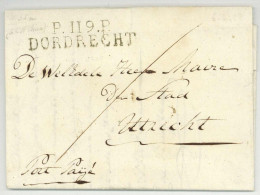 P.119.P.
DORDRECHT
De Heer Maire
der Stad
Utrecht
Port Payé